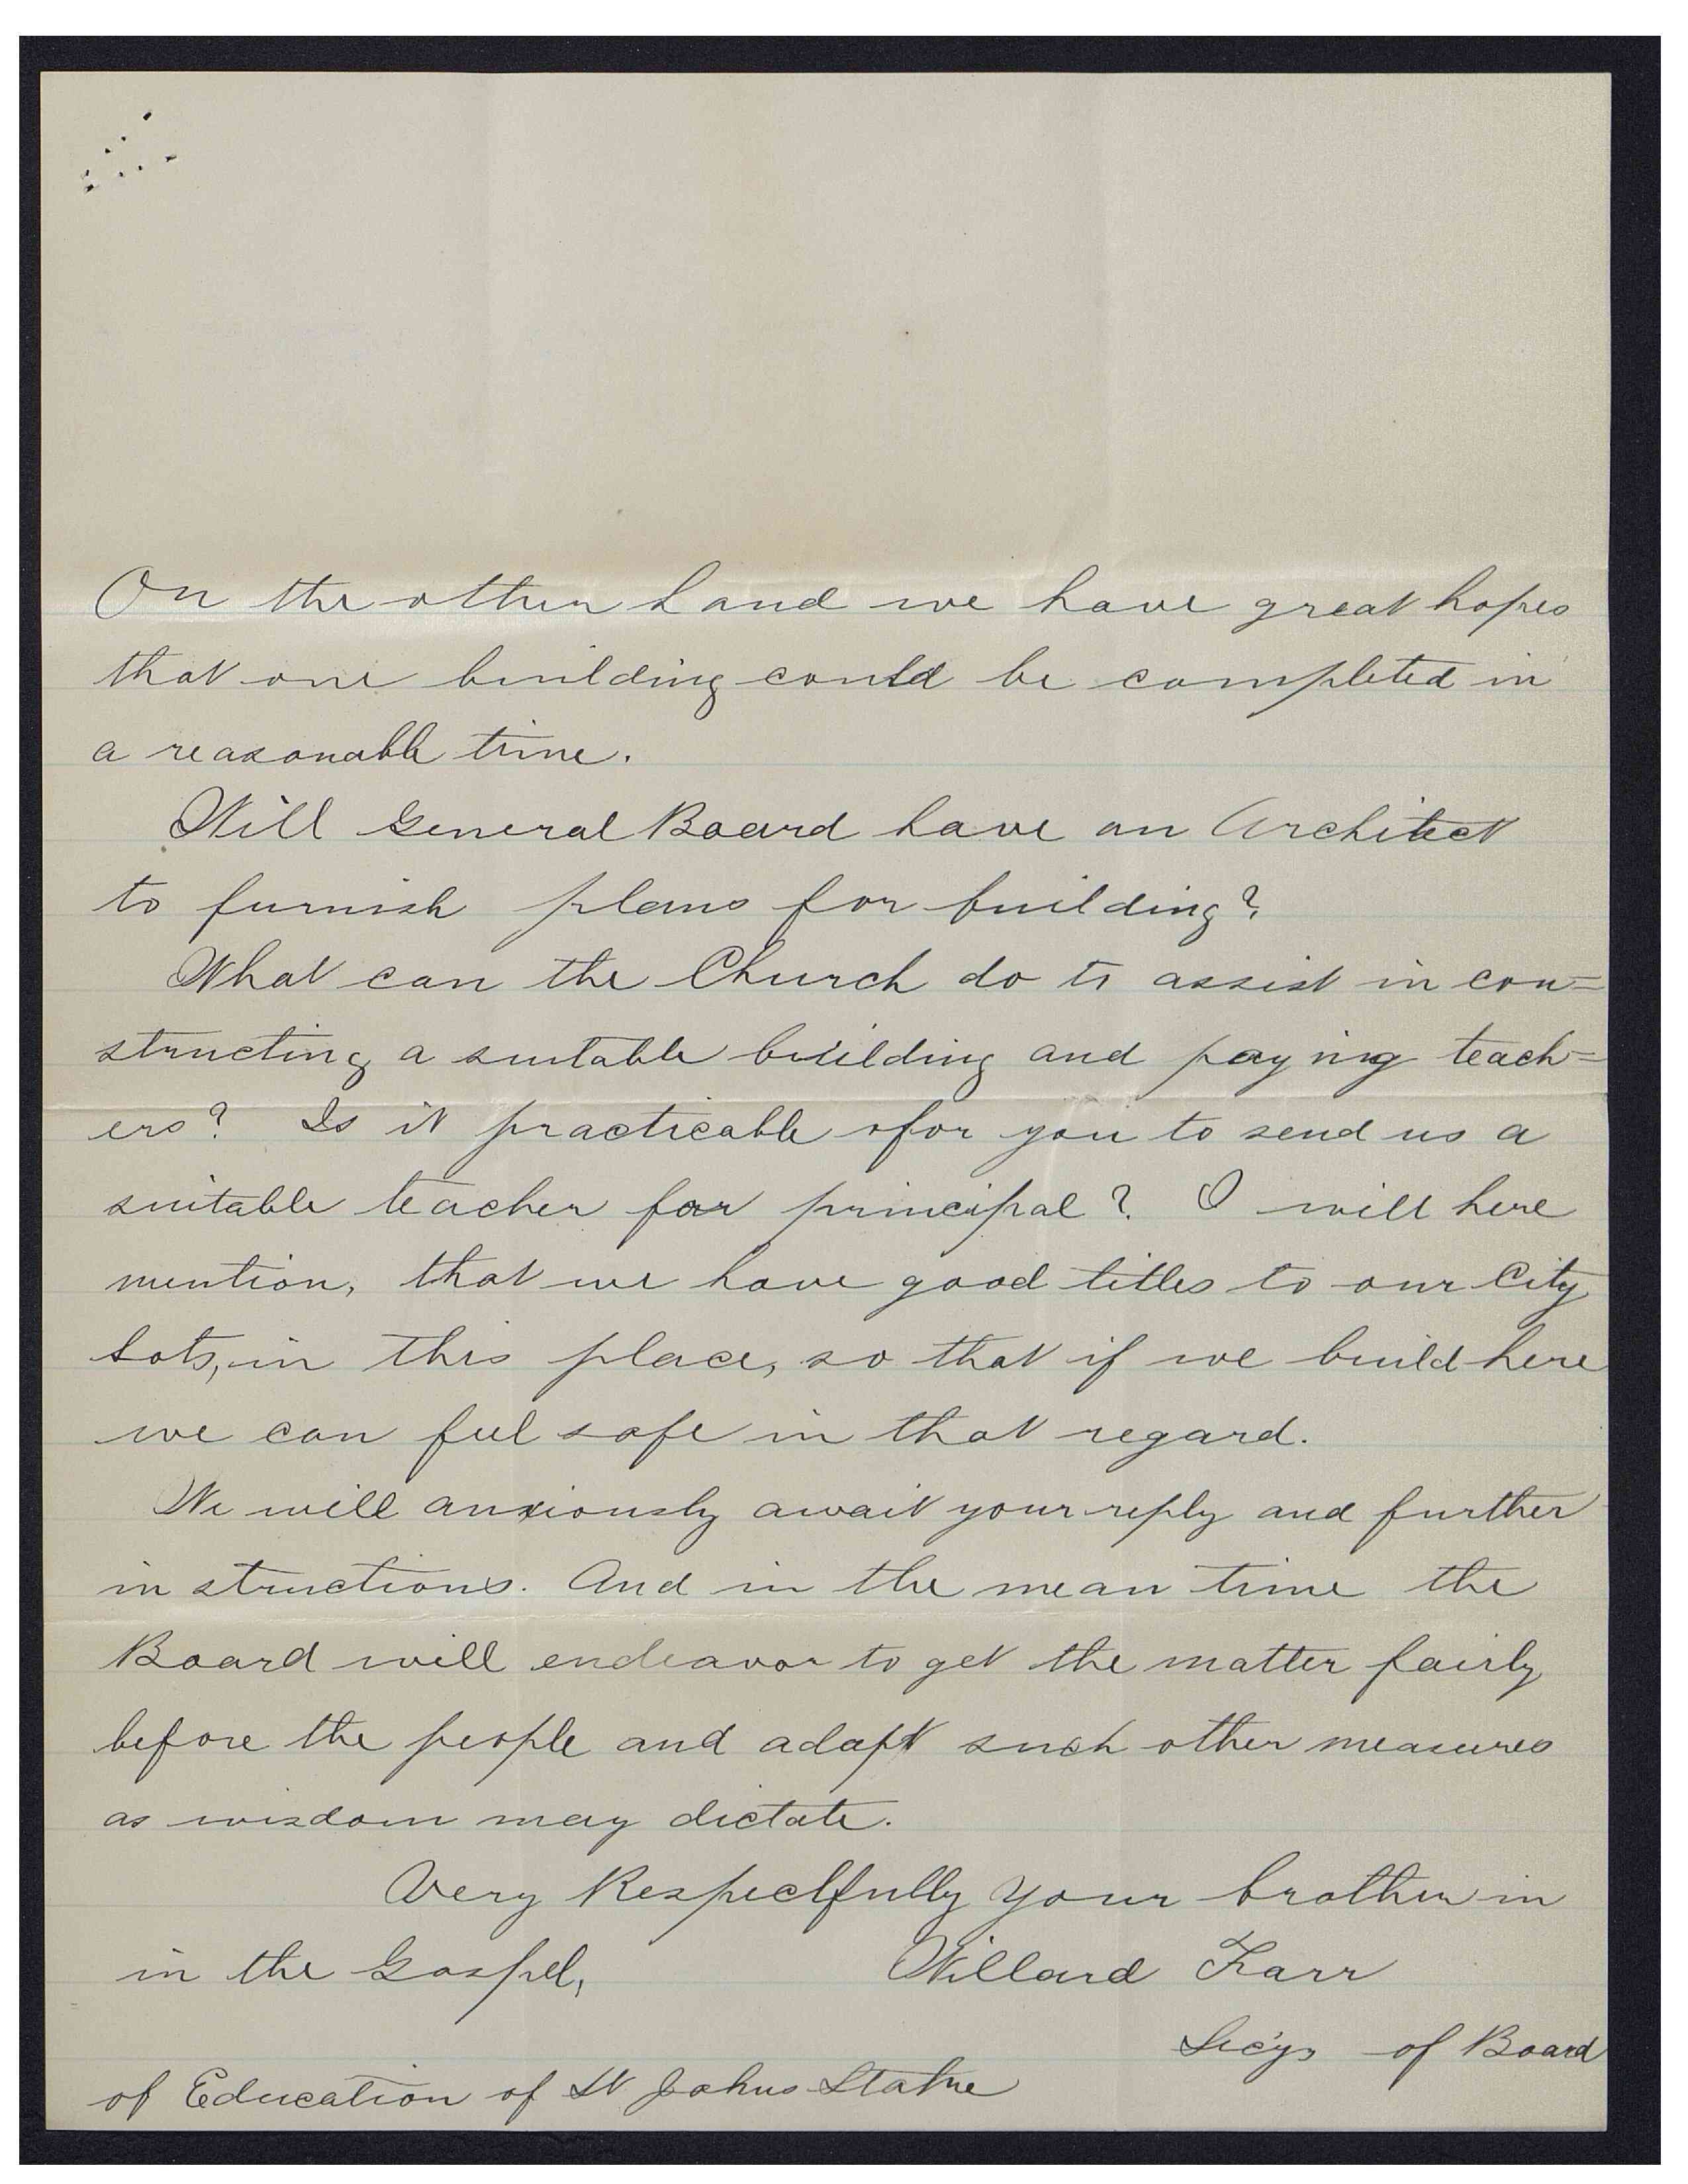 On the other hand we have great hopes
that one building could be completed in
a reasonable time.
Will General Board have an Architect
to furnish plans for building?
What can the Church do to assist in con=
structing a suitable building and paying teach=
ers? Is it practicable for you to send us a
suitable teacher for principal? I will here
mention, that we have good titles to our City
Lots, in this place, so that if we build here
we can feel safe in that regard.
We will anxiously await your reply and further
instructions. And in the mean time the
Board will endeavor to get the matter fairly
before the people and adapt such other measures
as wisdom may dictate.
Very Respectfully Your brother in
in the Gospel,
Willard Farr
Sec'y of Board
of Education of St Johns